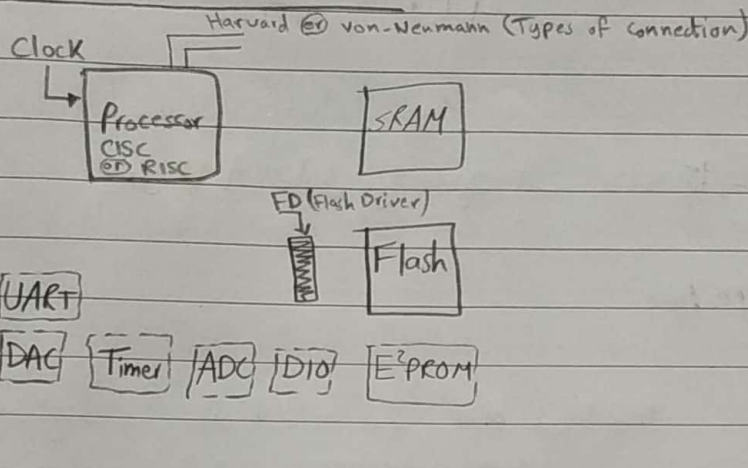 Harvard or von-Neumann (Types of connection)
Clock
Processor
CISC
or RISC
SRAM
FD (Flash Driver)
Flash
UART
DAC
Timer
ADC
DIO
E²PROM